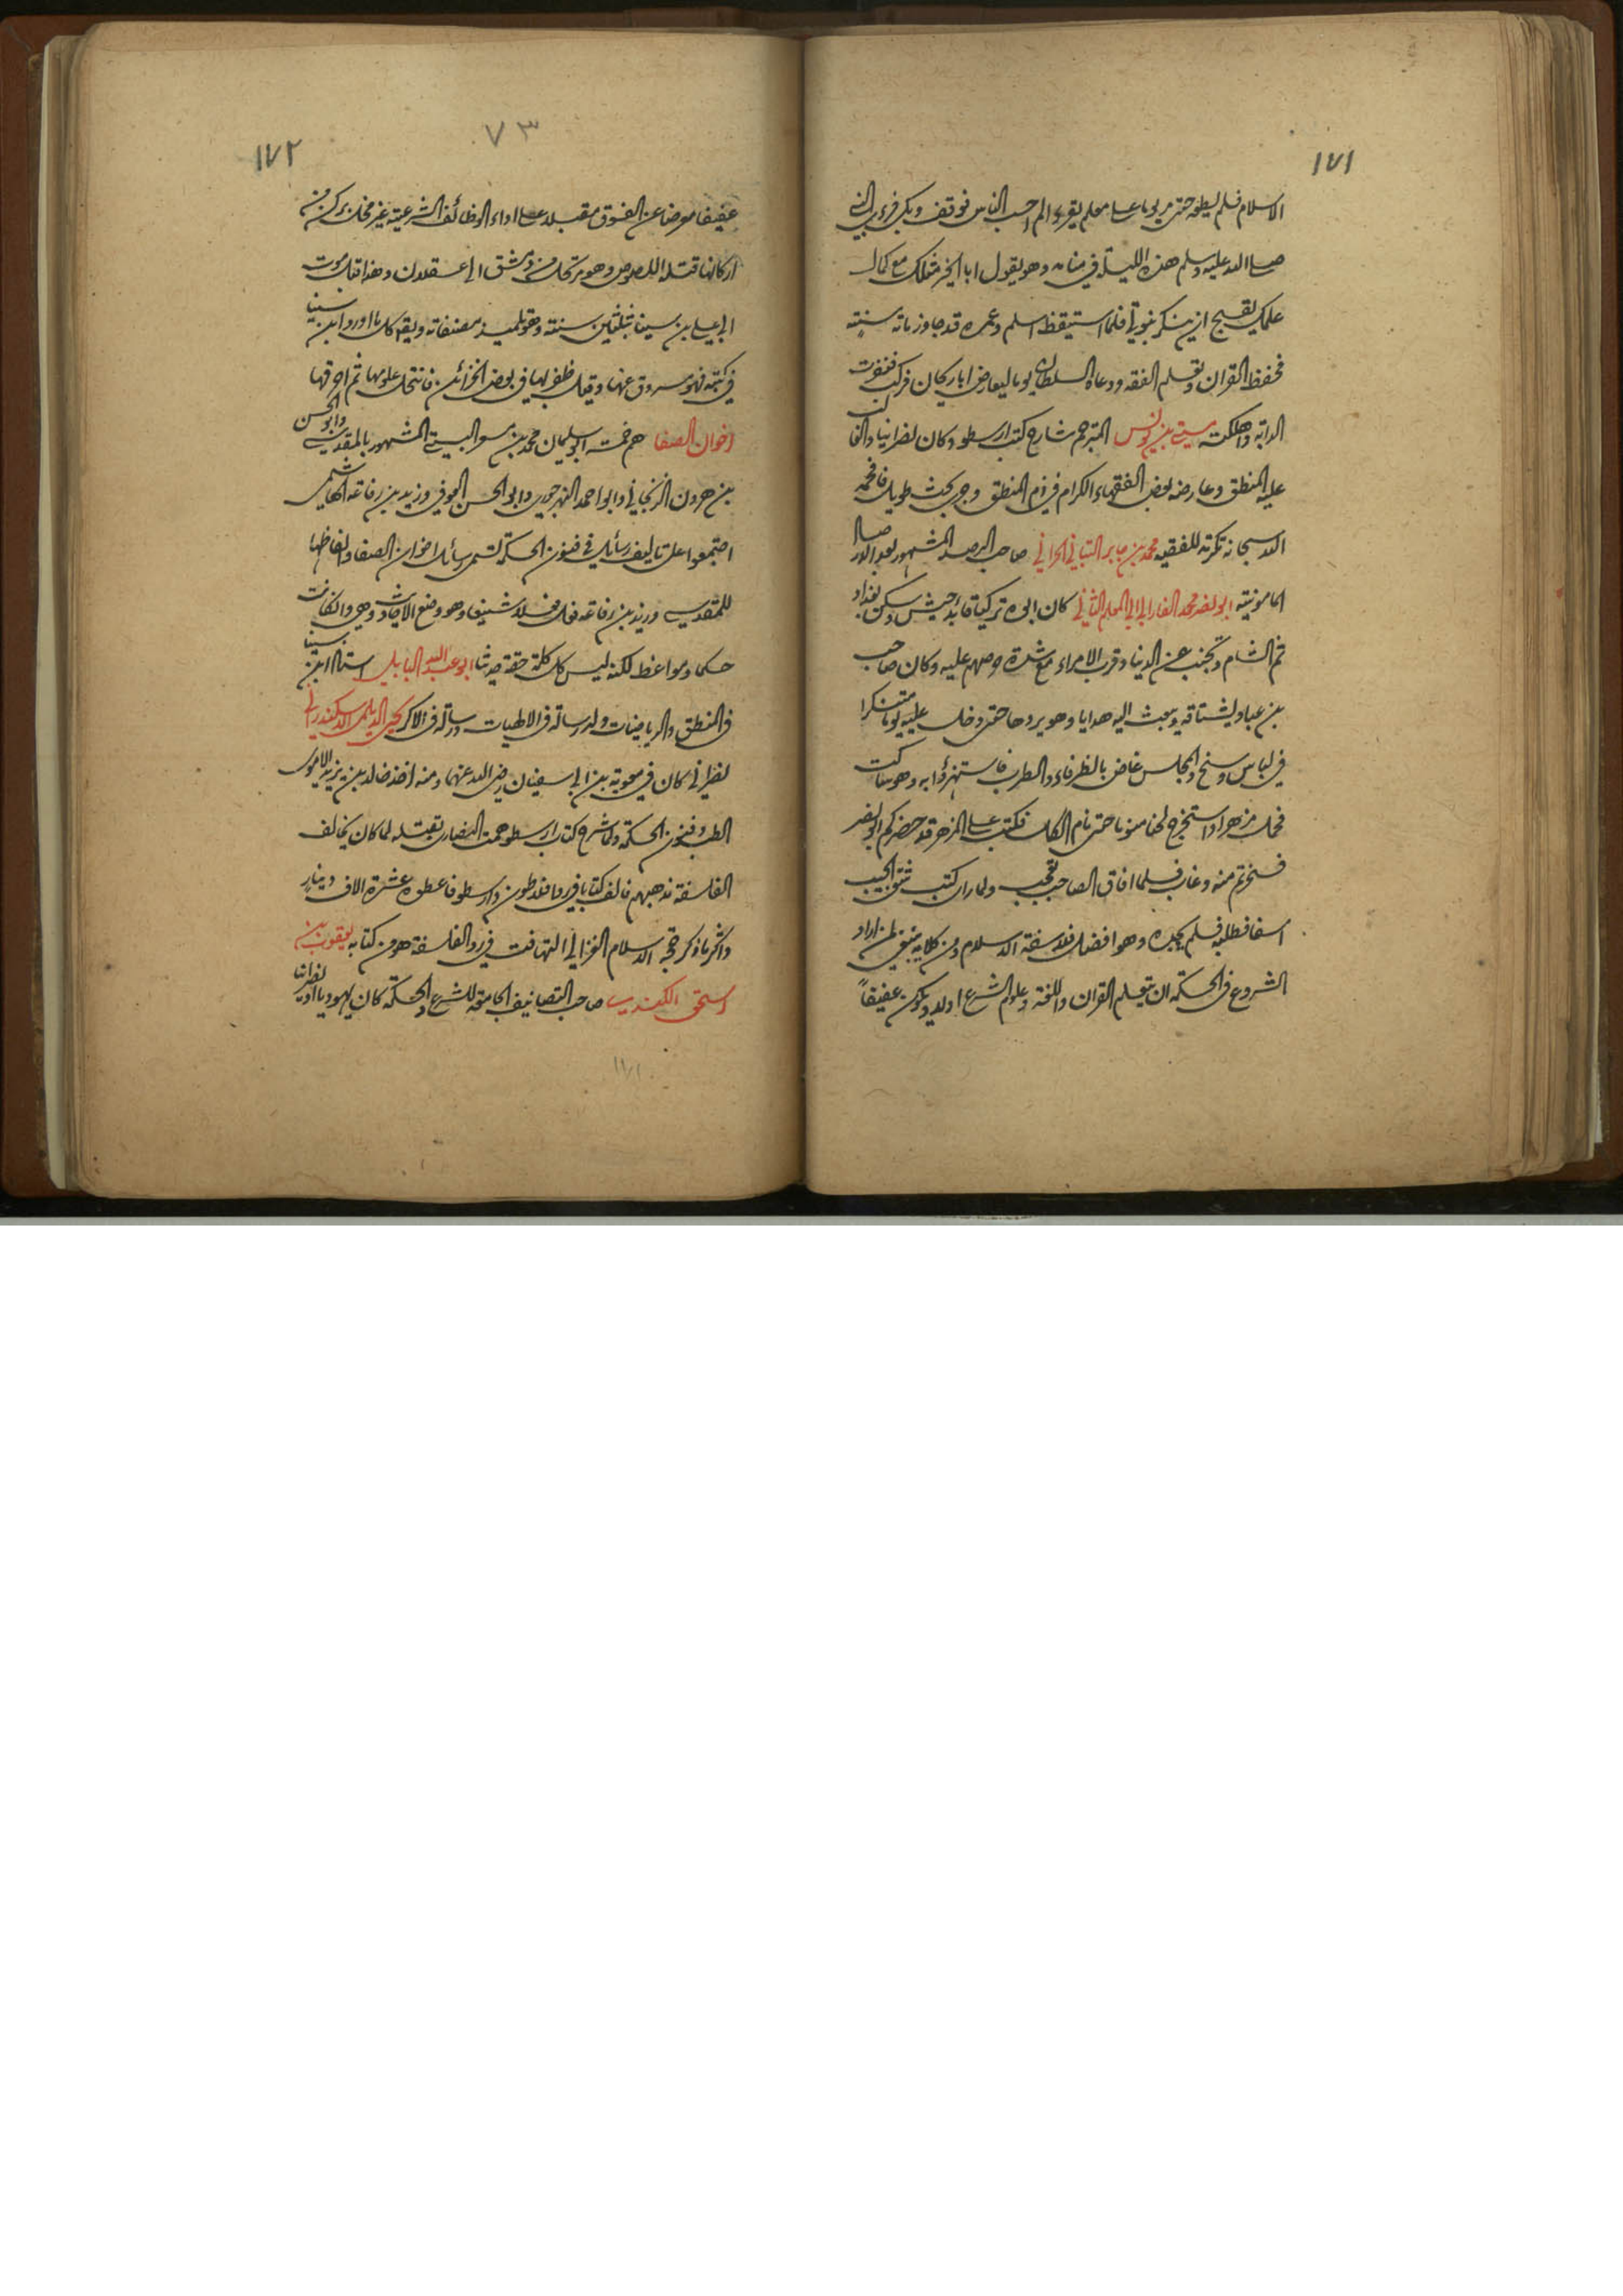 ١٧١
الاسلام فلم يطعه حتى مر يوما على معلم يقرء الم احسب الناس فوقف وبكى فرءى النبي
صلى الله عليه وسلم هذه الليلة في منامه وهو يقول ابا الخير مثلك مع كمال
علمك يقبح ان ينكر نبوتي فلما استيقظ اسلم وعمره قد جاوز مائة سنة
فحفظ القران وتعلم الفقه ودعاه السلطان يوما ليعارض ابا ريحان فركب فنفرت
الدابة واهلكته متى بن يونس المترجم شارح كتب ارسطو وكان نصرانيا والف
عليه المنطق وعارضه بعض الفقهاء الكرام في ذم المنطق وجرى بحث طويل فافحمه
الله سبحانه تكرمة للفقيه محمد بن جابر التباني الحراني صاحب الرصد المشهور بعد الارصاد
المامونية ابو نصر محمد الفارابي المعلم الثاني كان ابوه تركيا قائد جيش وسكن بغداد
ثم الشام وتجنب عن الدنيا وقرب الامراء مع شدة حرصهم عليه وكان صاحب
بن عباد يشتاقه ويبعث اليه هدايا وهو يردها حتى دخل عليه يوما متنكرا
في لباس وسخ والمجلس غاص بالظرفاء والطرب فاستهزؤا به وهو ساكت
فحمل مزهرا واستخرج لحنا منوما حتى نام الكل فكتب على المزهر قد حضركم ابو نصر
فسخرتم منه وغاب فلما افاق الصاحب تعجب ولما راى كتب شق الجيب
اسفا فطلبه فلم يجده وهو افضل فلاسفة الاسلام ومن كلامه ينبغي لمن اراد
الشروع في الحكمة ان يتعلم القران واللغة وعلوم الشرع اولا ويكون عفيفاً
٧٣
١٧٢
عفيفا معرضا عن الفسوق مقبلا على اداء الوظائف الشرعية غير مخل بركن من
اركانها قتله اللصوص وهو مرتحل من دمشق الى عسقلان وهذا قبل موت
ابي علي بن سينا بثلثين سنة وهو تلميذ مصنفاته ويقه كل ما اورد ابن سينا
في كتبه فهو مسروق عنها وقيل ظفر بها في بعض الخزائن فانتحل علومها ثم احرقها
اخوان الصفا هم خمسة ابو سليمان محمد بن مسعر البستي المشهور بالمقدسي وابو الحسن
بن هرون الزنجاني وابو احمد النهرجوري وابو الحسن العوفي وزيد بن رفاعة الهاشمي
اجتمعوا على تاليف رسائل في فنون الحكمة تسمى رسائل اخوان الصفا والفاظها
للمقدسي وزيد بن رفاعة فعل فعلا شنيعا وهو وضع الاحاديث وهي وان كانت
حكما ومواعظ لكنه ليس كل كلمة حقة حديثا ابو عبد الله البابلي استاذ ابن سينا
في المنطق والرياضيات وله رسالة في الالهيات ورسالة في الاكر يحيى الديلمي الاسكندراني
نصراني كان في معوية بن ابي سفيان رضى الله عنهما ومنه اخذ خالد بن يزيد الاموى
الطب وفنون الحكمة ولما شرح كتاب ارسطو همت النصارى بقتله لما كان يخالف
الفلسفة مذهبهم فالف كتابا في رد افلاطون وارسطو فاعطوه عشرة الاف دينار
واكثر ما ذكر حجة الاسلام الغزالي في التهافت في رد الفلسفة هو من كتابه يعقوب بن
اسحق الكندي صاحب التصانيف الجامعة للشرع والحكمة كان يهوديا او نصرانيا
١٧١